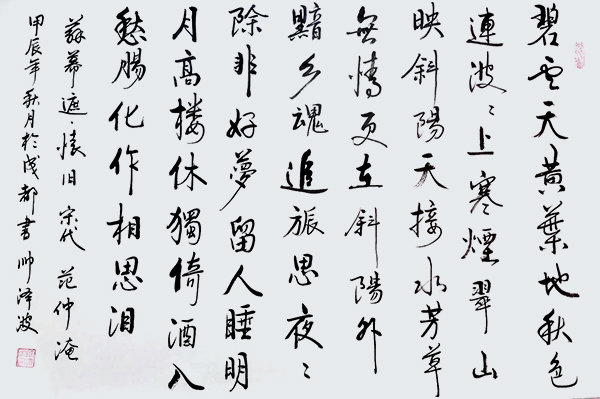 碧雲天黄葉地秋色
連波〻上寒煙翠山
映斜陽天接水芳草
無情更在斜陽外
黯乡魂追旅思夜〻
除非好夢留人睡明
月高楼休獨倚酒入
愁腸化作相思泪
蘇幕遮·懷旧 宋代 范仲淹
甲辰年秋月於成都書 帅泽波